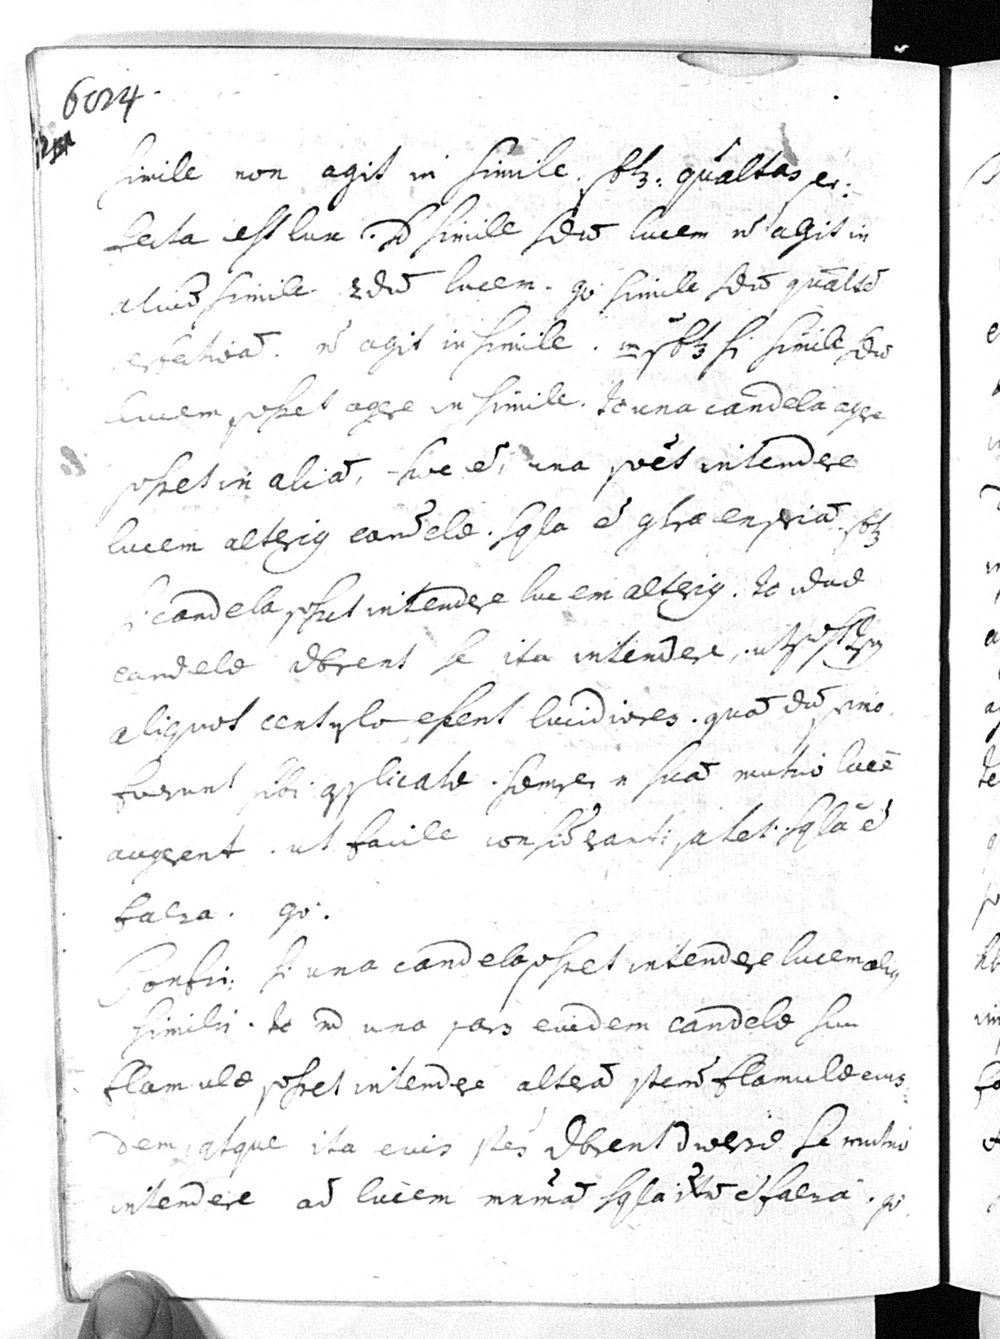 6024.
simile non agit in simile. sbz. qualtas per:
fecta est lux. sed simile sdũ lucem ñ agit in
aliud simile 2dũ lucem. go simile sdũ qualtẽ
perfectivã. ñ agit in simile. sbz si simile sdũ
lucem posset agere in simile. to una candela agere
posset in aliã, hoc ẽ, una potẽt intendere
lucem alterig candelæ. sqla ẽ gtra exp̃riã. sbz
si candela posset intendere lucem alterig. to duæ
candelæ dbrent se ita intendere, ut
aliquot cent plo essent lucidiores. quã dũ primo
fuerunt sibi applicatæ. semper n suã mutuo lucẽ
augerent. ut facile consideranti patet. sqla ẽ
falsa. go.
Confir: si una candela posset intendere lucem alig
similis. to una pars eiusdem candelæ suæ
flamulæ posset intendere alterã ptem flamulæ eius
dem, atque ita eius ptes dbrent diversæ se mutuo
intendere ad lucem mnimã sqla ẽ falsa. go